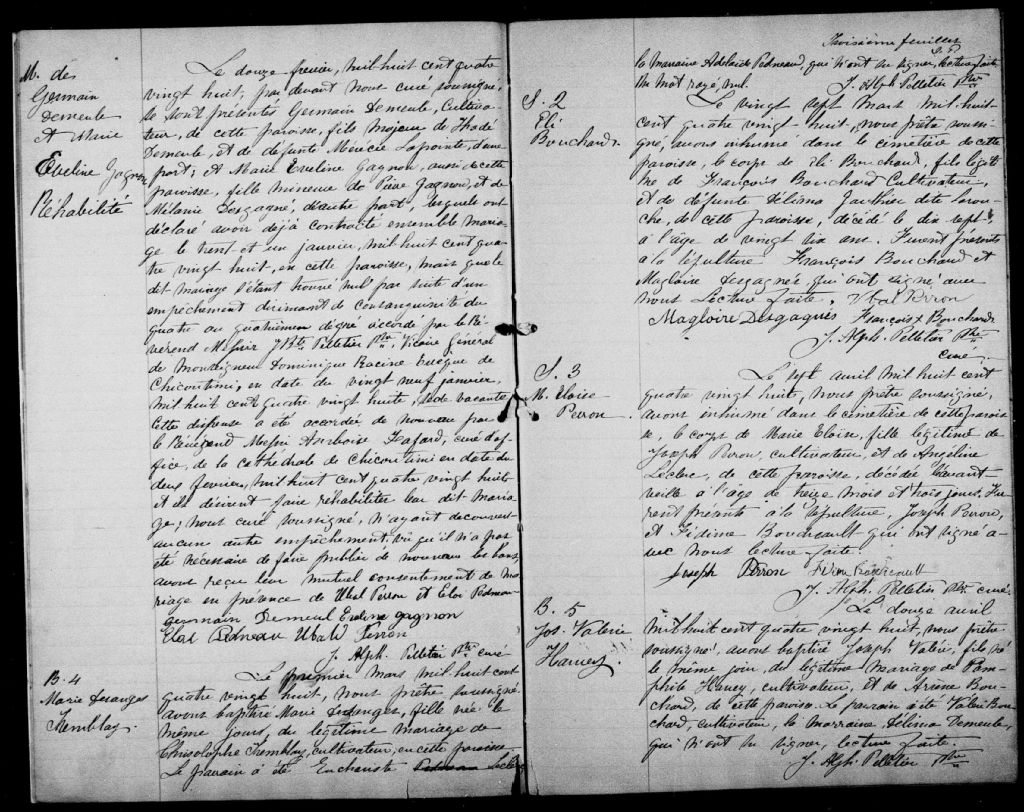 M. des
Germain
Demeule
et Marie
Eveline Gagnon
Réhabilité
Le douze fevrier, mil huit cent quatre
vingt huit, par devant nous curé soussigné,
se sont présentés Germain Demeule, cultiva-
teur, de cette paroisse, fils majeur de Thadé
Demeule, et de defunte Mérécie Lapointe, d'une
part; et Marie Eveline Gagnon, aussi de cette
paroisse, fille mineure de Pierre Gagnon, et de
Mélanie Desgagné, d'autre part, lesquels ont
déclaré avoir déjà contracté ensemble maria-
ge le trent et un janvier, mil huit cent qua-
tre vingt huit, en cette paroisse, mais que le
dit mariage s'étant trouvé nul par suite d'un
empêchement dirimant de consanguinité du
quatre au quatrième dégré accordé par le Ré-
vérend Messir J Bte Pelletier Ptre, Vicaire General
de Monseigneur Dominique Racine Evêque de
Chicoutimi, en date du vingt neuf janvier,
mil huit cent quatre vingt huit, sede vacante,
cette dispense a été accordée de nouveau par
le Révérend Messir Ambroise Fafard, curé d'of-
fice, de la cathédrale de Chicoutimi en date du
deux fevrier, mil huit cent quatre vingt huit
et ils désirent faire réhabiliter leur dit maria-
ge; nous curé soussigné, n'ayant decouvert
aucun autre empêchement, vu qu'il n'a pas
été nécessaire de faire publier de nouveau les bans,
avons reçu leur mutuel consentement de ma-
riage en présence de Ubal Perron et Eloi Pedneau
germain Demeul Eveline gagnon
Eloi Pedneau Ubald Perron
J. Alph. Pelletier Ptre curé
B. 4
Marie Desanges
Tremblay.
Le premier Mars mil huit cent
quatre vingt huit, nous prêtre soussigné
avons baptisé Marie Desanges, fille née le
même jour, du légitime mariage de
Chrisolophe Tremblay, cultivateur, en cette paroisse
Le parrain a été Euchariste Pedneau Leclerc
Troisième feuillet
J. P.
la marraine Adelaide Pedneau, qui n'ont su signer, lecture faite
Un mot rayé nul.
J. Alph Pelletier Ptre
S. 2
Eli
Bouchard.
Le vingt sept Mars mil huit
cent quatre vingt huit, nous prêtre soussi-
gné, avons inhumé dans le cimetière de cette
paroisse, le corps de Eli Bouchard, fils légiti-
me de François Bouchard cultivateur,
et de defunte Délima Gauthier dite Larou-
che, de cette paroisse, décédé le dix sept,
à l'âge de vingt six ans. Furent présents
à la sépulture François Bouchard et
Magloire Desgagnés qui ont signé avec
nous Lecture faite. Ubal Perron
Magloire Desgagnés François x Bouchard
J. Alph. Pelletier Ptre
curé
S. 3
M. Eloise
Perron
Le sept avril mil huit cent
quatre vingt huit, nous prêtre soussigné,
avons inhumé dans le cimetière de cette parois-
se, le corps de Marie Eloïse, fille légitime de
Joseph Perron, cultivateur, et de Angéline
Leclerc, de cette paroisse, décédée l'avant
veille à l'âge de treize mois et trois jours. Fu-
rent présents à la sépulture, Joseph Perron,
et Fidime Boudreault qui ont signé a-
vec nous lecture faite.
Joseph Perron Fidime Boudreault
J. Alph. Pelletier Ptre curé
B. 5
Jos. Valérie
Harvey.
Le douze avril
mil huit cent quatre vingt huit, nous prêtre
soussigné, avons baptisé Joseph Valéri, fils né
le même jour, du légitime mariage de Pam-
phile Harvey, cultivateur, et de Arsène Bou-
chard, de cette paroisse. Le parrain a été Valéri Bou-
chard, cultivateur, la marraine Délima Demeule,
qui n'ont su signer, lecture faite.
J. Alph. Pelletier Ptre